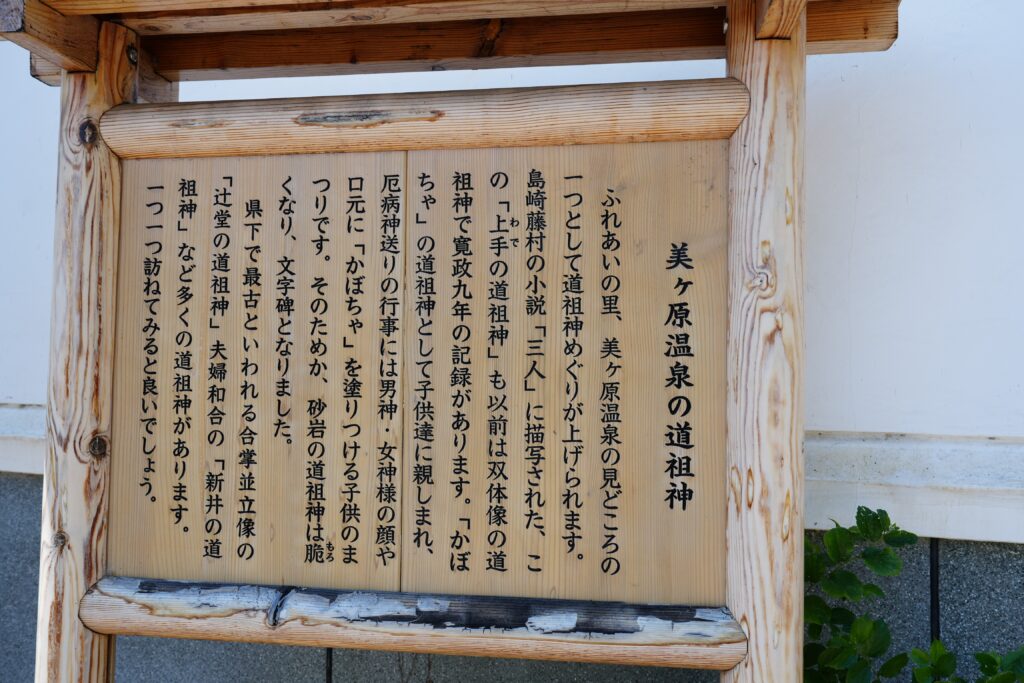 美ヶ原温泉の道祖神
ふれあいの里、美ヶ原温泉の見どころの
一つとして道祖神めぐりが上げられます。
島崎藤村の小説「三人」に描写された、こ
の「上手の道祖神」も以前は双体像の道
わで
祖神で寛政九年の記録があります。「かぼ
ちゃ」の道祖神として子供達に親しまれ、
厄病神送りの行事には男神・女神様の顔や
口元に「かぼちゃ」を塗りつける子供のま
つりです。そのためか、砂岩の道祖神は脆
もろ
くなり、文字碑となりました。
県下で最古といわれる合掌並立像の
「辻堂の道祖神」夫婦和合の「新井の道
祖神」など多くの道祖神があります。
一つ一つ訪ねてみると良いでしょう。